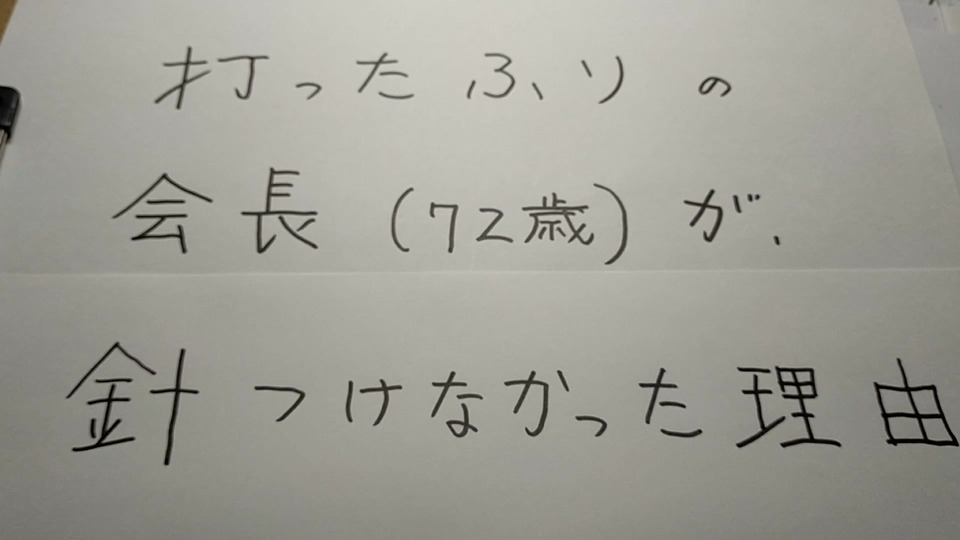 打ったふりの
会長(72歳)が、
針つけなかった理由